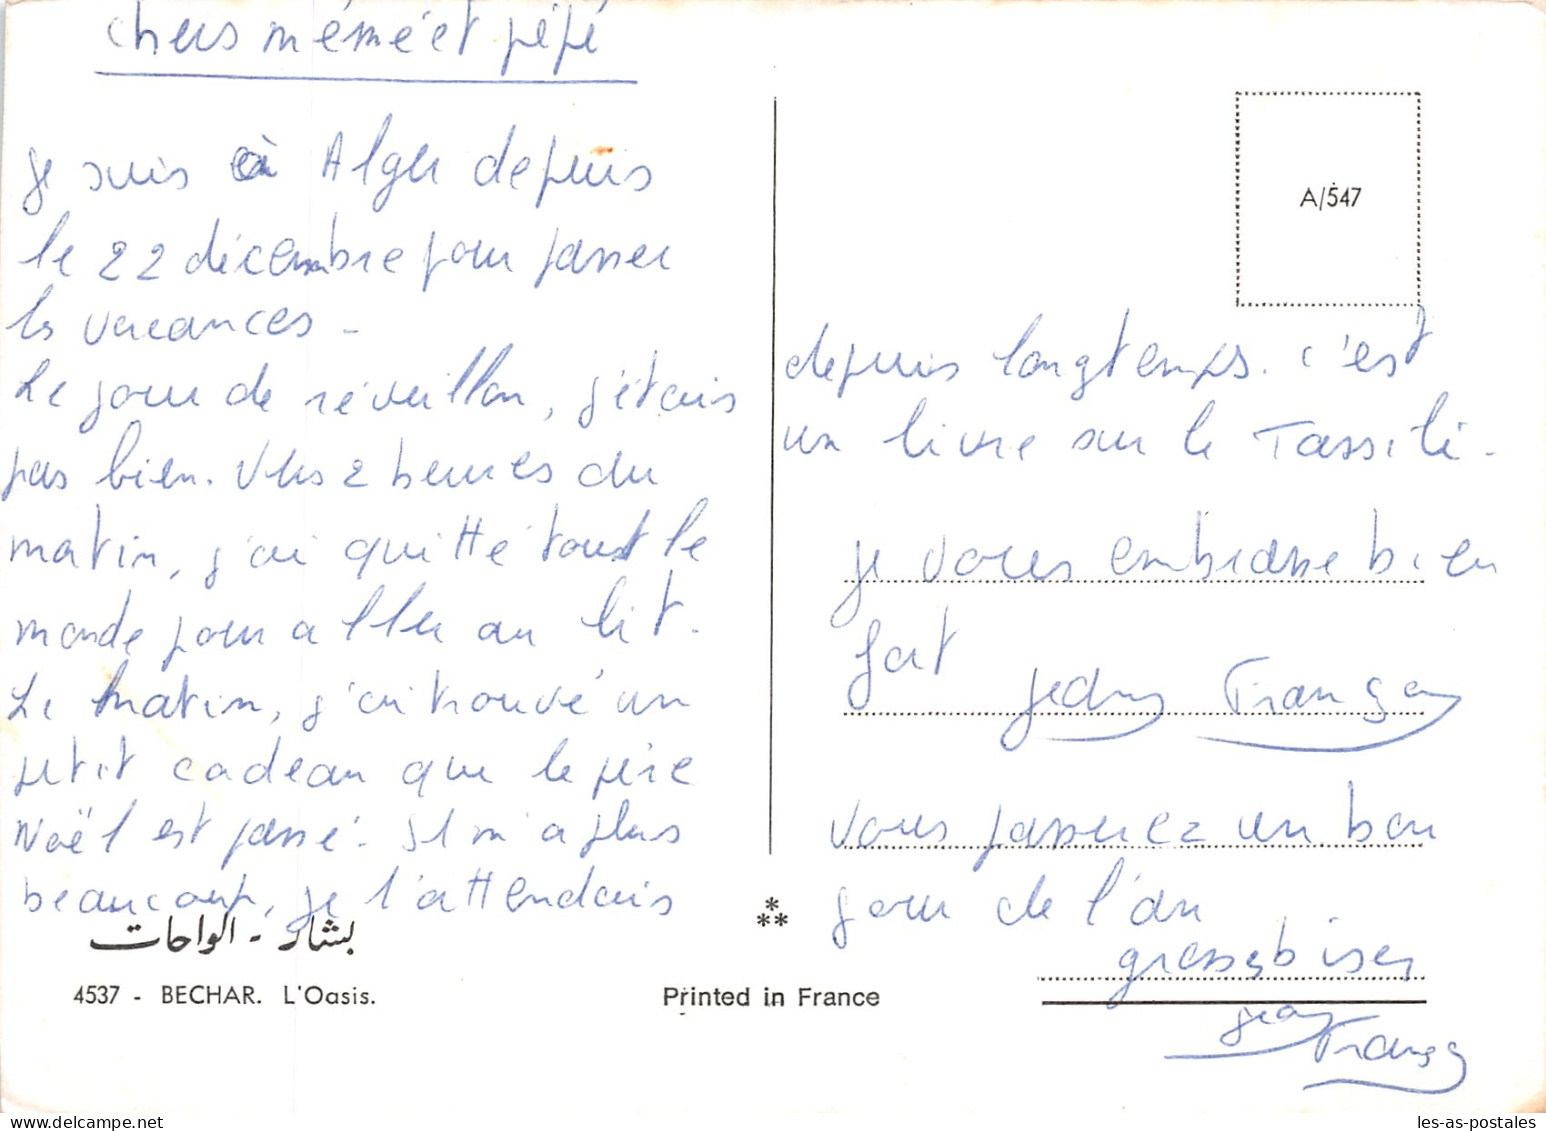 chers mémé et pépé
je suis à Alger depuis
le 22 décembre pour passer
les vacances -
Le jour de réveillon, j'étais
pas bien. Vers 2 heures du
matin, j'ai quitté tout le
monde pour aller au lit.
Le matin, j'ai trouvé un
petit cadeau que le père
Noël est passé. Il m'a plus
beaucoup, je l'attendais
بشار - الواحات
4537 - BECHAR. L'Oasis.
Printed in France
***
A/547
depuis longtemps. c'est
un livre sur le Tassili.
je vous embrasse bien
fort Jean François
Vous passerez un bon
jour de l'an
grosses bises
Jean
François
les-as-postales